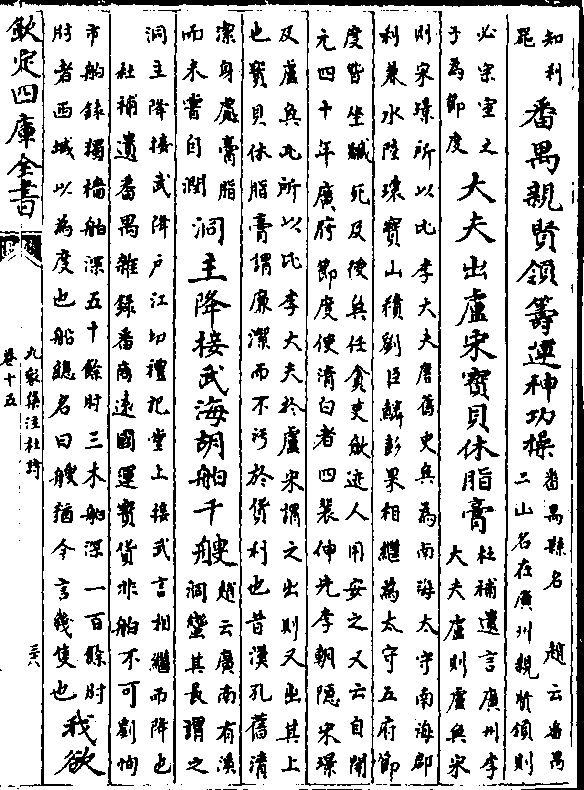 知利
番禺親賢領籌運神功操
番禺縣名　趙云番禺
二山名在廣州親賢領則
必宗室之
于為節度
大夫出盧宋寶貝休脂膏
杜補遺言廣州李
大夫盧則盧奐宋
則宋璟所以比李大夫唐舊史奐為南海太守南海郡
利兼水陸瓌寶山積劉巨麟彭杲相繼為太守五府節
度皆坐贓死及後奐任貪吏斂迹人用安之又云自開
元四十年廣府節度使清白者四裴伷先李朝隱宋璟
及盧奐此所以比李大夫於盧宋謂之出則又出其上
也寶貝休脂膏謂廉潔而不污於貨利也昔漢孔舊清
潔身處膏脂
而未嘗自潤
洞主降接武海胡舶千艘
趙云廣南有溪
洞蠻其長謂之
洞主降接武降戶江切禮記堂上接武言相繼而降也
杜補遺番禺雜錄番商遠國運寶貨非舶不可劉恂
市舶錄獨檣舶深五十餘肘三木舶深一百餘肘
肘者西域以為度也船總名曰艘猶今言幾隻也
我欲
欽定四庫全書
九家集注杜詩
卷十五